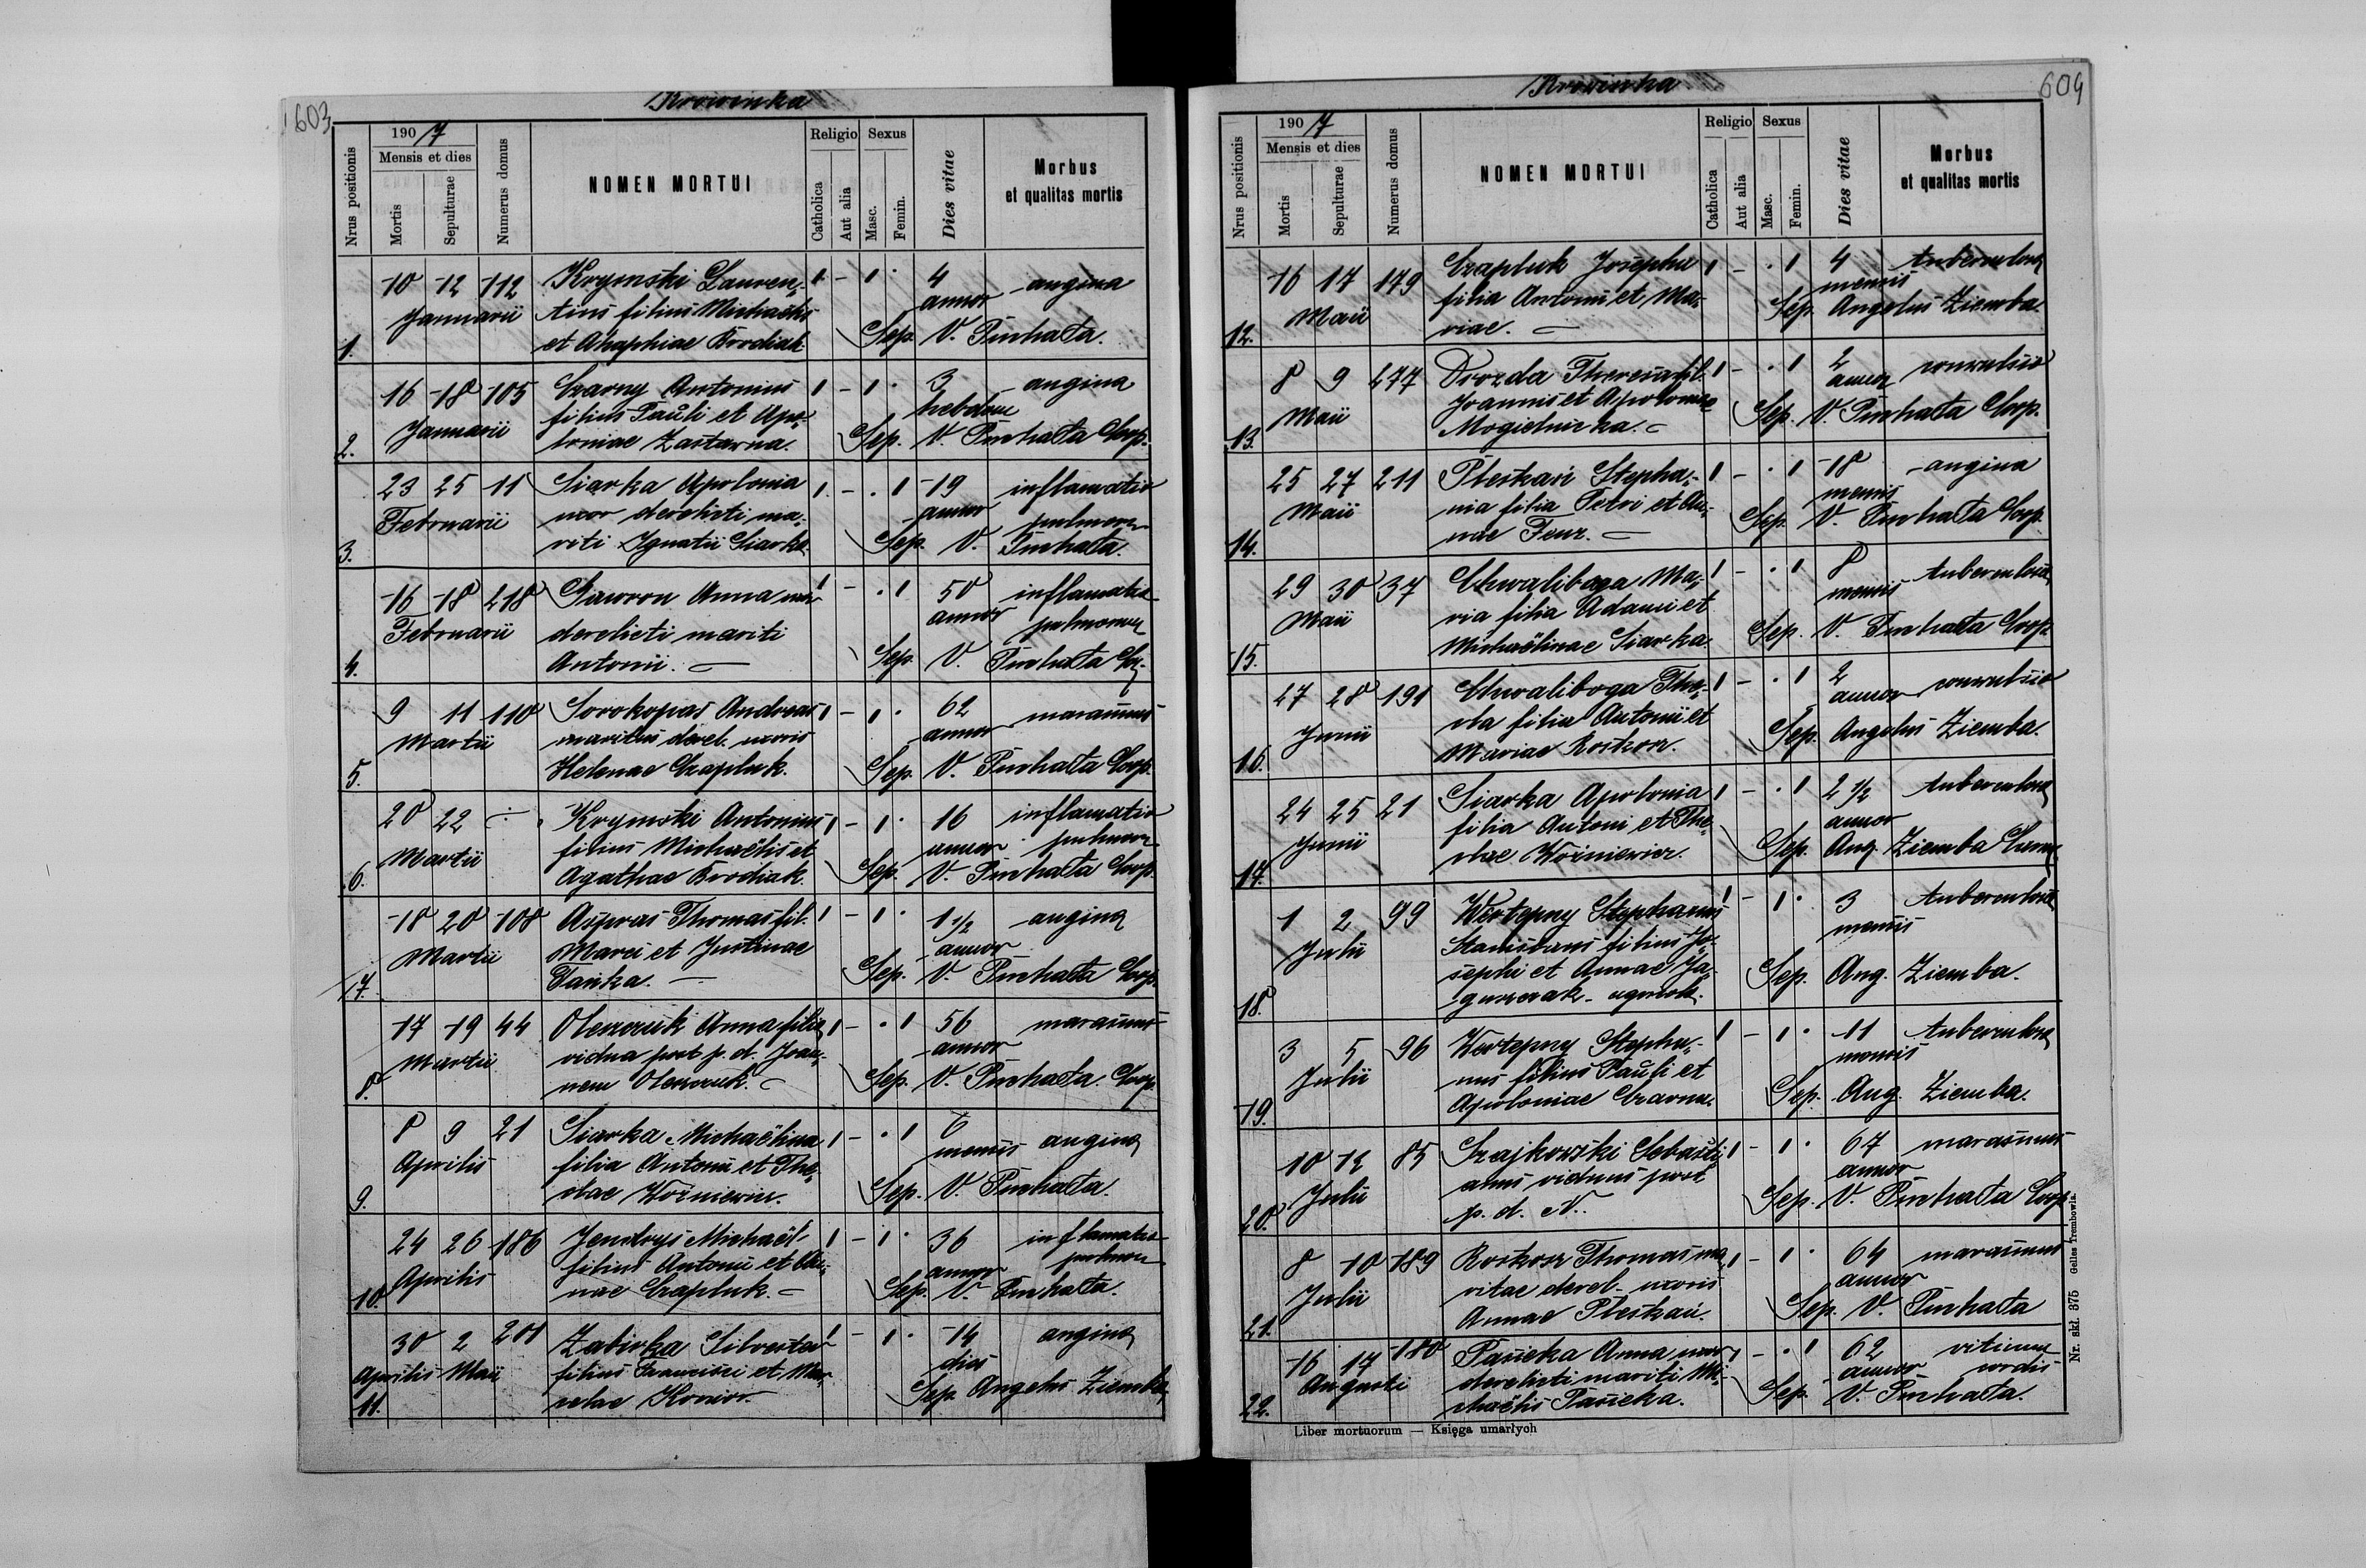 603
Krowinka
190 7
Mensis et dies
Nrus positionis
Mortis
Sepulturae
Numerus domus
NOMEN MORTUI
Religio
Catholica
Aut alia
Sexus
Masc.
Femin.
Dies vitae
Morbus
et qualitas mortis
10 12 112 Krymski Lauren- 1 - 1 · 4 angina
Januarii tius filius Michaelis annor
1. et Ahaphiae Brodiak Sep. V. Pinhata.
16 18 105 Czarny Antonius 1 - 1 · 3 angina
filius Pauli et Apo- hebdom
Januarii
2. loniae Zastawna. Sep. V. Pinhata Coop.
23 25 11 Siarka Apolonia 1 - · 1 19 inflamatio
Februarii uxor derelicti ma- annor pulmon
3. riti Ignatii Siarka. Sep. V. Pinhata.
16 18 218 Gawron Anna uxor 1 - · 1 50 inflamatio
Februarii derelicti mariti annor pulmonum
4. Antonii. Sep. V. Pinhata
9 11 110 Sorokopas Andreas 1 - 1 · 62 marasmus
Martii maritus derel. uxoris annor
5. Helenae Czapluk. Sep. V. Pinhata Coop.
20 22 Krymski Antonius 1 - 1 · 16 inflamatio
Martii filius Michaëlis et annor pulmon
6. Agathae Brodiak. Sep. V. Pinhata Coop.
18 20 108 Aspras Thomas fil. 1 - 1 · 1 1/2 angina
Martii Marci et Justinae annor
7. Tanka. Sep. V. Pinhata Coop.
17 19 44 Oleszczuk Anna filia 1 - · 1 56 marasmus
Martii vidua post p. d. Joan- annor
8. nem Oleszczuk. Sep. V. Pinhata. Coop.
8 9 21 Siarka Michaëlina 1 - · 1 6 angina
Aprilis filia Antonii et The- mensis
9. clae Woźniewicz. Sep. V. Pinhata.
24 26 186 Jendrys Michaël 1 - 1 · 36 inflamatio
Aprilis filius Antonii et An- annor pulmon
10. nae Czapluk. Sep. V. Pinhata.
30 2 201 Zabirka Silvester 1 - 1 · 14 angina
Aprilis Maii filius Francisci et Mar- dies
11. celae Sep. Angelus Ziemba
604
Krowinka
190 7
Mensis et dies
Nrus positionis
Mortis
Sepulturae
Numerus domus
NOMEN MORTUI
Religio
Catholica
Aut alia
Sexus
Masc.
Femin.
Dies vitae
Morbus
et qualitas mortis
16 17 179 Czapluk Josepha 1 - · 1 4 tuberculosa
Maii filia Antonii et Ma- mensis
12. riae. Sep. Angelus Ziemba.
8 9 277 Drozda Theresia fil. 1 - · 1 2 convulsio
Maii Joannis et Apoloniae annor
13. Mogielnicka. Sep. V. Pinhata Coop.
25 27 211 Pleskacz Stepha- 1 - · 1 18 angina
Maii nia filia Petri et An- mensis
14. nae Fenz. Sep. V. Pinhata Coop.
29 30 37 Chwaliboga Ma- 1 - · 1 8 tuberculosa
Maii ria filia Adami et mensis
15. Michaëlinae Siarka. Sep. V. Pinhata Coop.
27 28 191 Chwaliboga The- 1 - · 1 2 convulsio
Junii cla filia Antonii et annor
16. Mariae Koskosz. Sep. Angelus Ziemba.
24 25 21 Siarka Apolonia 1 - · 1 2 1/2 tuberculosa
Junii filia Antoni et The- annor
17. clae Woźniewicz. Sep. Ang. Ziemba
1 2 99 Wertepny Stephanus 1 - 1 · 3 tuberculosa
Julii Stanislaus filius Jo- mensis
sephi et Annae Ja- Sep. Ang. Ziemba.
18.
3 5 96 Wertepny Stepha- 1 - 1 · 11 tuberculosa
Julii nus filius Pauli et mensis
19. Apoloniae Czarna. Sep. Ang. Ziemba.
10 12 85 Szajkowski Sebasti- 1 - 1 · 67 marasmus
Julii anus viduus post annor
20. p. d. N. Sep. V. Pinhata Coop.
8 10 189 Koskosz Thomas ma- 1 - 1 · 64 marasmus
Julii ritae derel. uxoris annor
21. Annae Pleskacz. Sep. V. Pinhata
16 17 180 Pasieka Anna uxor 1 - · 1 62 vitium
Augusti derelicti mariti Mi- annor cordis
22. chaëlis Pasieka. Sep. V. Pinhata.
Liber mortuorum — Księga umarłych
Nr. skł. 375 Gelles Trembowla.